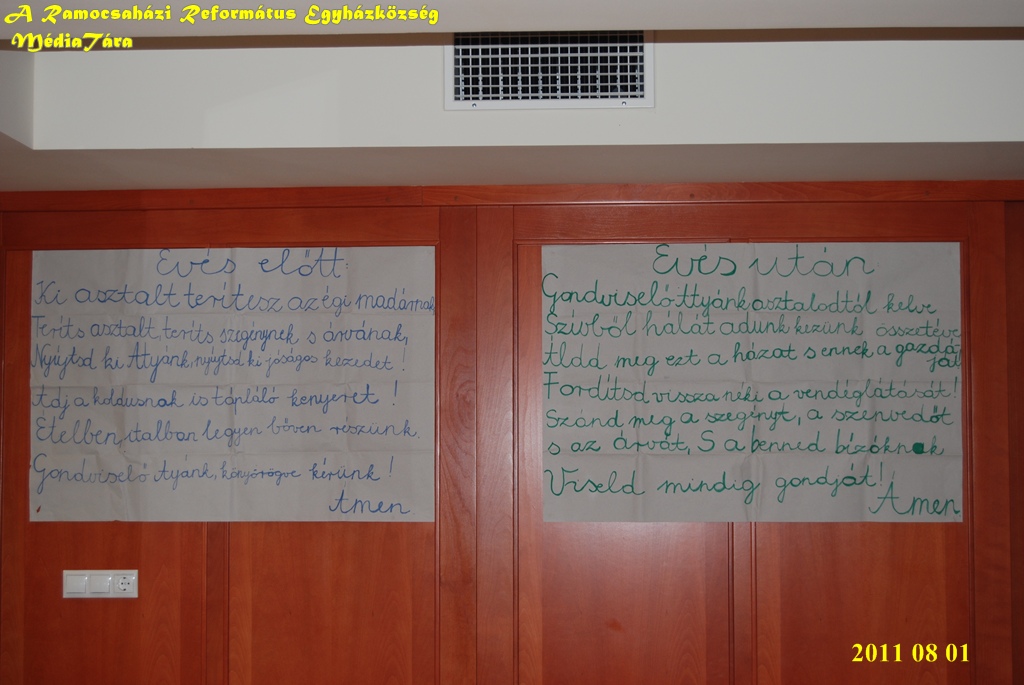 A Ramocsaházi Református Egyházközség
MédiaTára
Evés előtt:
Ki asztalt terítesz az égi madárnak
Teríts asztalt, teríts szegénynek s árvának,
Nyújtsd ki Atyánk, nyújtsd ki jóságos kezedet!
Adj a koldusnak is tápláló kenyeret!
Ételben, italban legyen bőven részünk.
Gondviselő Atyánk, könyörögve kérünk!
Ámen
Evés után
Gondviselő Attyánk asztalodtól kelve
Szívből hálát adunk kezünk összetéve
Áldd meg ezt a házat s ennek a gazdá-
ját
Fordítsd vissza néki a vendéglátását!
Szánd meg a szegényt, a szenvedőt
s az árvát, S a benned bízóknak
Viseld mindig gondját!
Ámen
2011 08 01